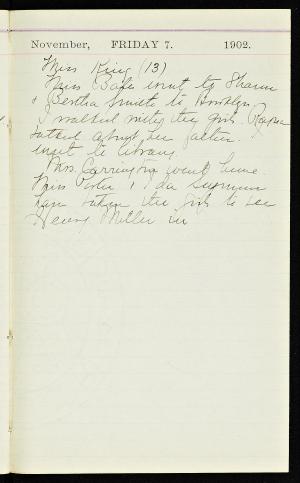 November, FRIDAY 7. 1902.
Miss King (13)
Miss went to Sharon
& Bertha Smith to Brooklyn
I walked with the girls.
talked about her father
went to library
Mrs. Carrington went home
Miss Porter & Ida
have taken the girls to see
Henry Miller in